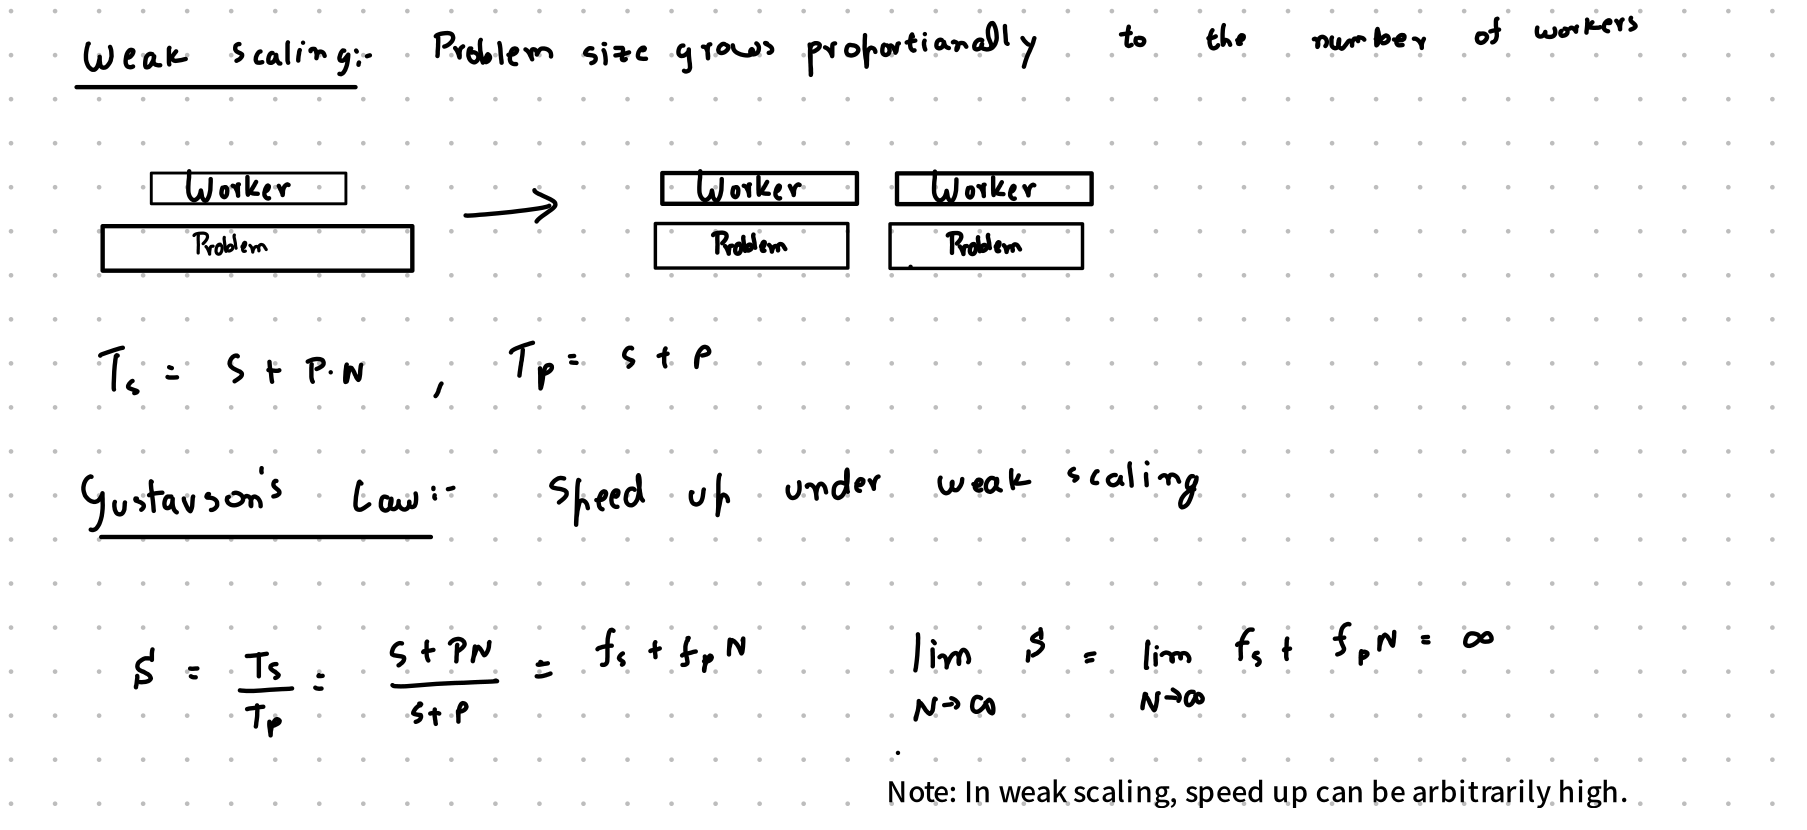 Weak scaling:- Problem size grows proportianally to the number of workers
Worker Worker Worker
Problem Problem Problem
T_s = S + P.N , T_p = S + P
Gustavson's Law:- Speed up under weak scaling
S = T_s/T_p = (S + PN)/(S + P) = f_s + f_p N lim N→∞ S = lim N→∞ f_s + f_p N = ∞
Note: In weak scaling, speed up can be arbitrarily high.